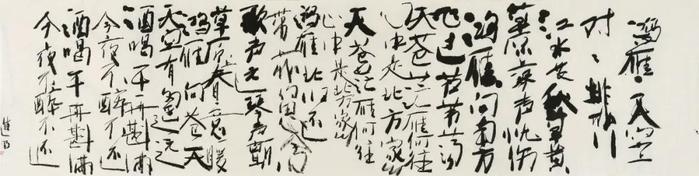 鸿雁天空上
对对排成行
江水长秋草黄
草原上琴声忧伤
鸿雁向南方
飞过芦苇荡
天苍茫雁何往
心中是北方家乡
天苍茫雁何往
心中是北方家乡
鸿雁北归还
带上我的思念
歌声远琴声颤
草原上春意暖
鸿雁向苍天
天空有多遥远
酒喝干再斟满
今夜不醉不还
酒喝干再斟满
今夜不醉不还